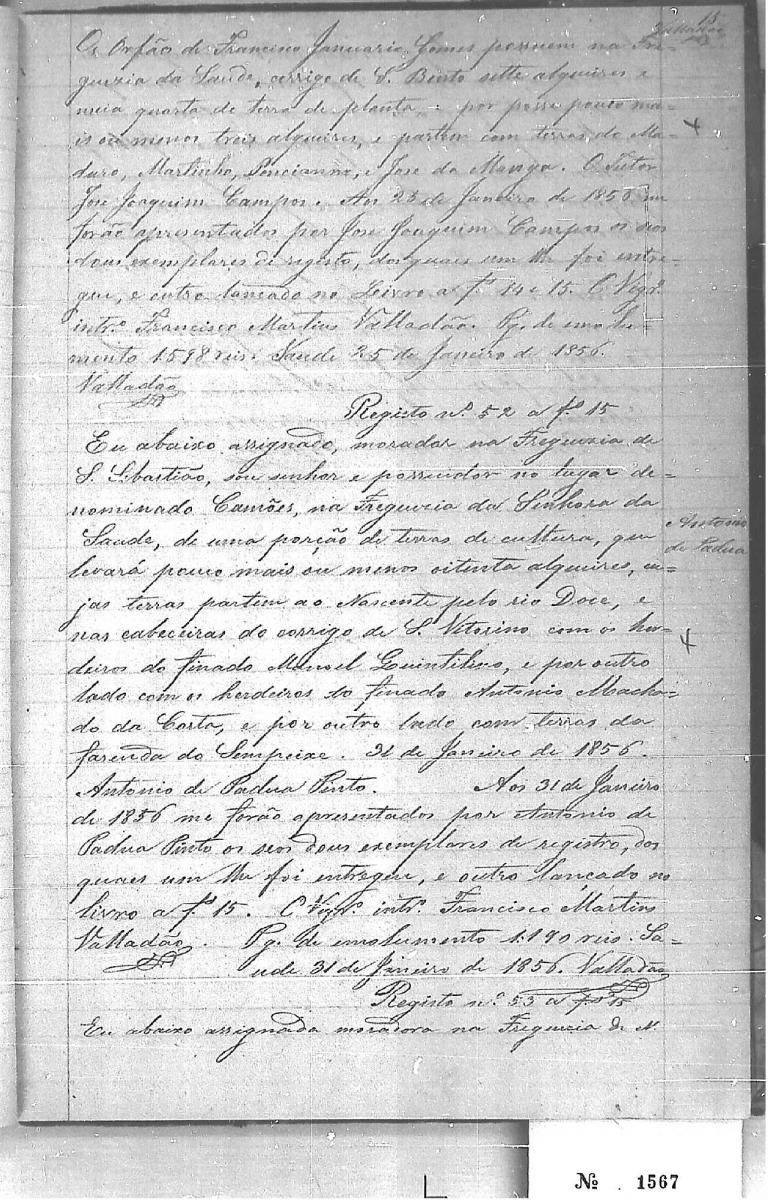 15
Valladão
Os Orfãos de Francisco Januario Gomes possuem na Fre=
guezia da Saude, corrigo de S. Bento sette alqueires e
meia quarta de terra de planta, e por posse pouco ma=
is ou menos treis alqueires, e partem com terras de Ma=
duro, Martinho, Ponciano, e Jose da Manga. O Tutor
Jose Joaquim Campos. Aos 25 de Janeiro de 1856 me
forão apresentados por Jose Joaquim Campos os seos
dous exemplares de registo, dos quaes um lhe foi entre=
gue, e outro lancado no Livro a fs 14 e 15. O Vigrº.
intrº. Francisco Martins Valladão. Pg. de emolu=
mento 1.598 reis. Saude 25 de Janeiro de 1856.
Valladão
Registo nº. 52 a fs. 15
Eu abaixo assignado, morador na Freguezia de
S. Sebastião, sou senhor e possuidor no lugar de=
nominado Camões, na Freguezia da Senhora da
Saude, de uma porção de terras de cultura, que
levará pouco mais ou menos oitenta alqueires, cu=
jas terras partem ao Nascente pelo rio Doce, e
nas cabeceiras do corrigo de S. Vitorino com os her=
deiros do finado Manoel Quintiliano, e por outro
lado com os herdeiros do finado Antonio Macha=
do da Costa, e por outro lado com terras da
fazenda do Sempeixe. 31 de Janeiro de 1856.
Antonio de Padua Pinto. Aos 31 de Janeiro
de 1856 me forão apresentados por Antonio de
Padua Pinto os seos dous exemplares de registro, dos
quaes um lhe foi entregue, e outro lancado no
livro a fs. 15. O Vigrº. intrº. Francisco Martins
Valladão. Pg. de emolumento 1.190 reis. Sa=
ude 31 de Janeiro de 1856. Valladão
Registo nº. 53 a fs 15
Eu abaixo assignada moradora na Freguezia de N
Antonio
de Padua
Nº . 1567